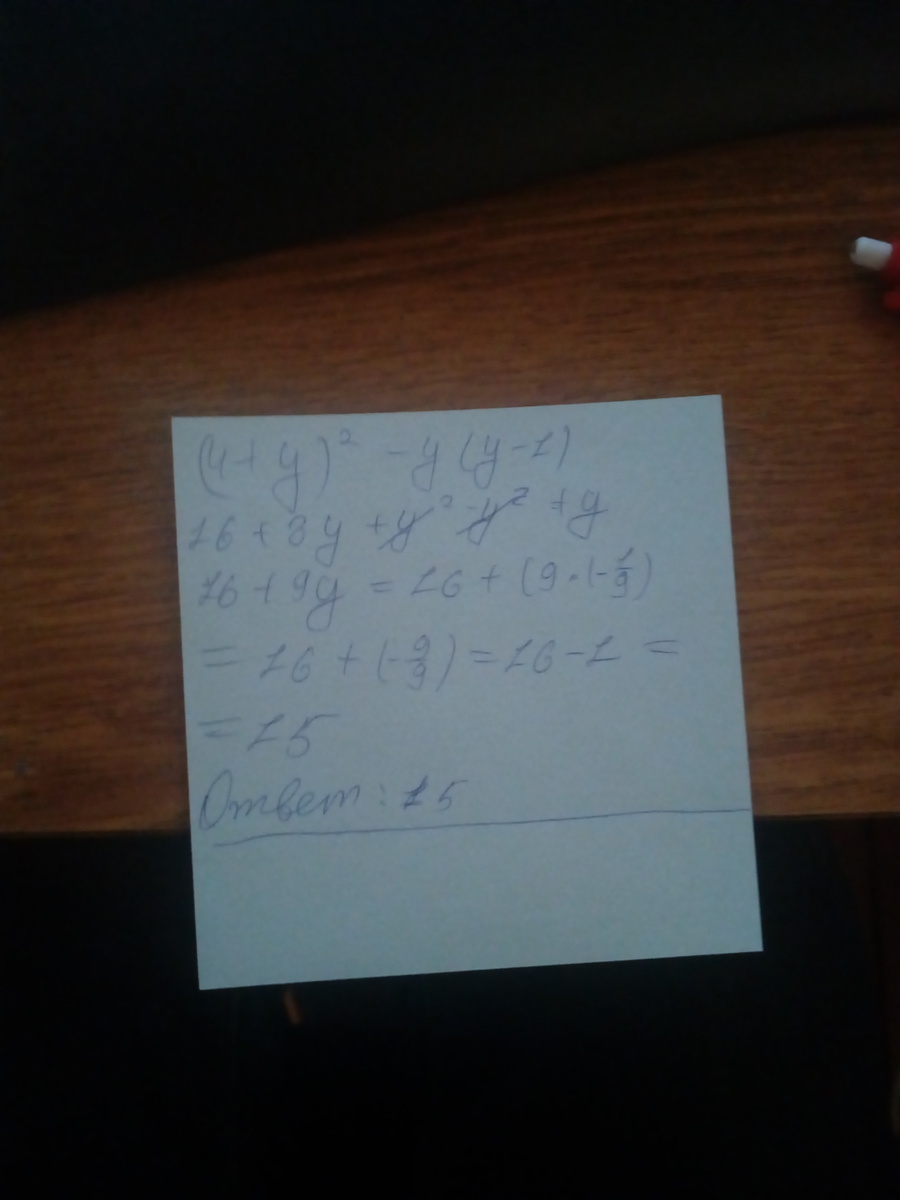 (4+y)² -y(y-1)
16+8y+y²-y²+y
16+9y=16+(9·(-1/9)
=16+(-9/9)=16-1=
=15
Ответ: 15